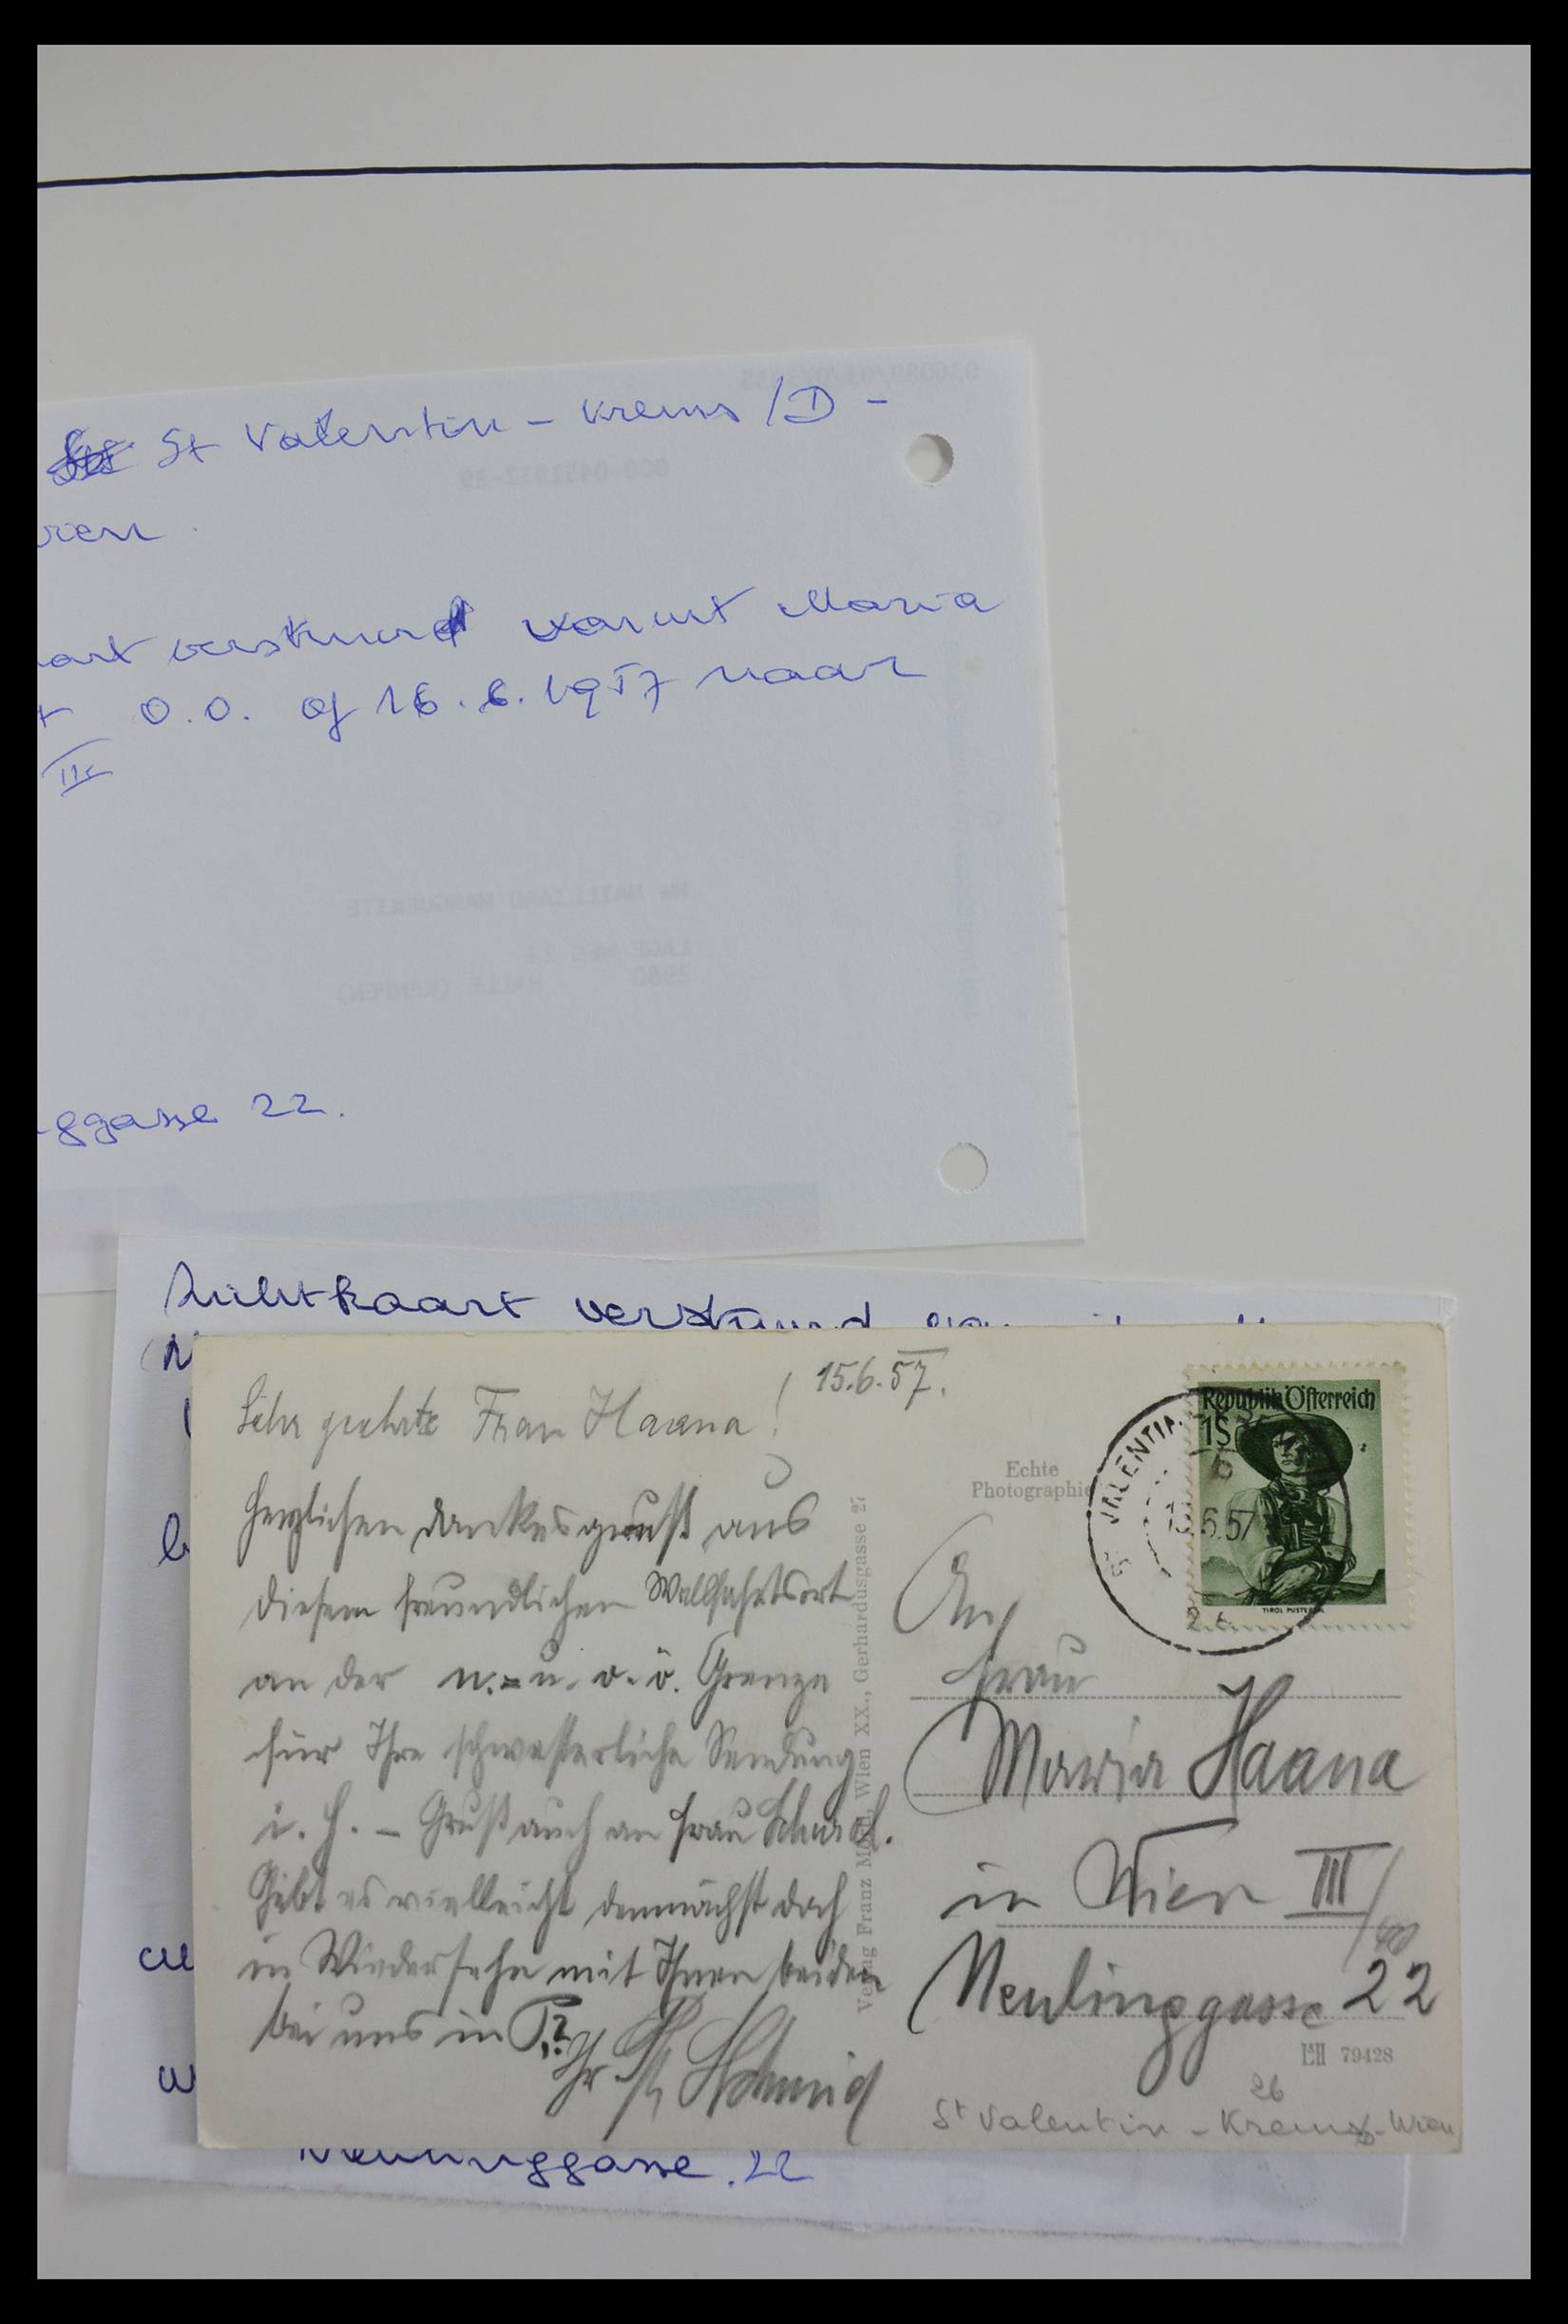 St Valentin - Krems /D -
ren.
aart verstuurd vanuit Maria
O.O. of 16.6.1957 naar
III
ggasse 22.
Zichtkaart verstuurd
15.6.57.
Sehr geehrte Frau Haana!
Herzlichen Dankesgruß aus
diesem freundlichen Wallfahrtsort
an der n.- u. o.ö. Grenze
für Ihre schwesterliche Sendung
i. H. - Gruß auch an Frau
Gibt es vielleicht demnächst doch
ein Wiedersehn mit Ihnen beiden
bei uns in P.?
Ihr Schmid
Verlag Franz Mörtl, Wien XX., Gerhardusgasse 27
Echte
Photographie
Republik Österreich
1S
TIROL PUSTERTAL
ST VALENTIN
6.57
An
Frau
Maria Haana
in Wien III/
Neulinggasse 22
79428
26
St Valentin - Krems - Wien
Neulinggasse 22